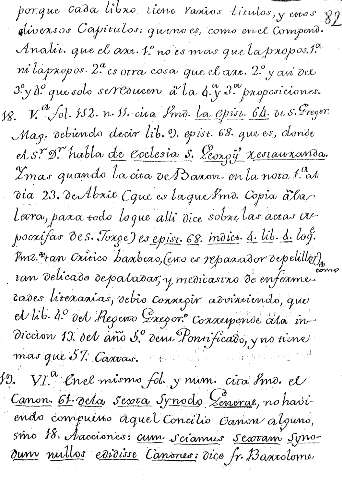 porque cada libro tiene varios titulos, y estos 82
diversos Capitulos: que no es, como en el Compend.
Analit. que el axe. 1.º no es mas que la propos. 1.ª
ni la propos. 2.ª es otra cosa que el axe. 2.º y asi del
3.º y 4.º que solo se reducen à la 4.ª y 3.ª proposiciones.
18. V.ª fol. 152. n. 11. cita Pmd. la epist. 64. de S. Gregor.
Mag. debiendo decir lib. 9. epist. 68. que es, donde
el S.r D.r habla de Ecclesia S. Georgij restauranda.
Y mas quando la cita de Baron. en la nota 1.ª al
dia 23. de Abril (que es la que Pmd. Copia à la
letra, para todo lo que alli dice sobre las actas
apocrifas de S. Jorge) es epist. 68. indict. 4. lib. 4. Luego
Pmd. tan Critico barbero, (esto es reparador de pelillos)
como
tan delicado de paladar, y medicastro de enferme-
dades literarias, debio corregir advirtiendo, que
el lib. 4.º del Registro Gregor.º corresponde à la in-
diccion 13. del año 5.º de su Pontificado, y no tiene
mas que 57. Cartas.
19. VI.ª En el mismo fol. y num. cita Pmd. el
Canon. 61. de la Sexta Synodo General, no havi-
endo compuesto aquel Concilio Canon alguno,
sino 18. Acciones: cum sciamus sextam Syno-
dum nullos edidisse Canones: dice fr. Bartolome